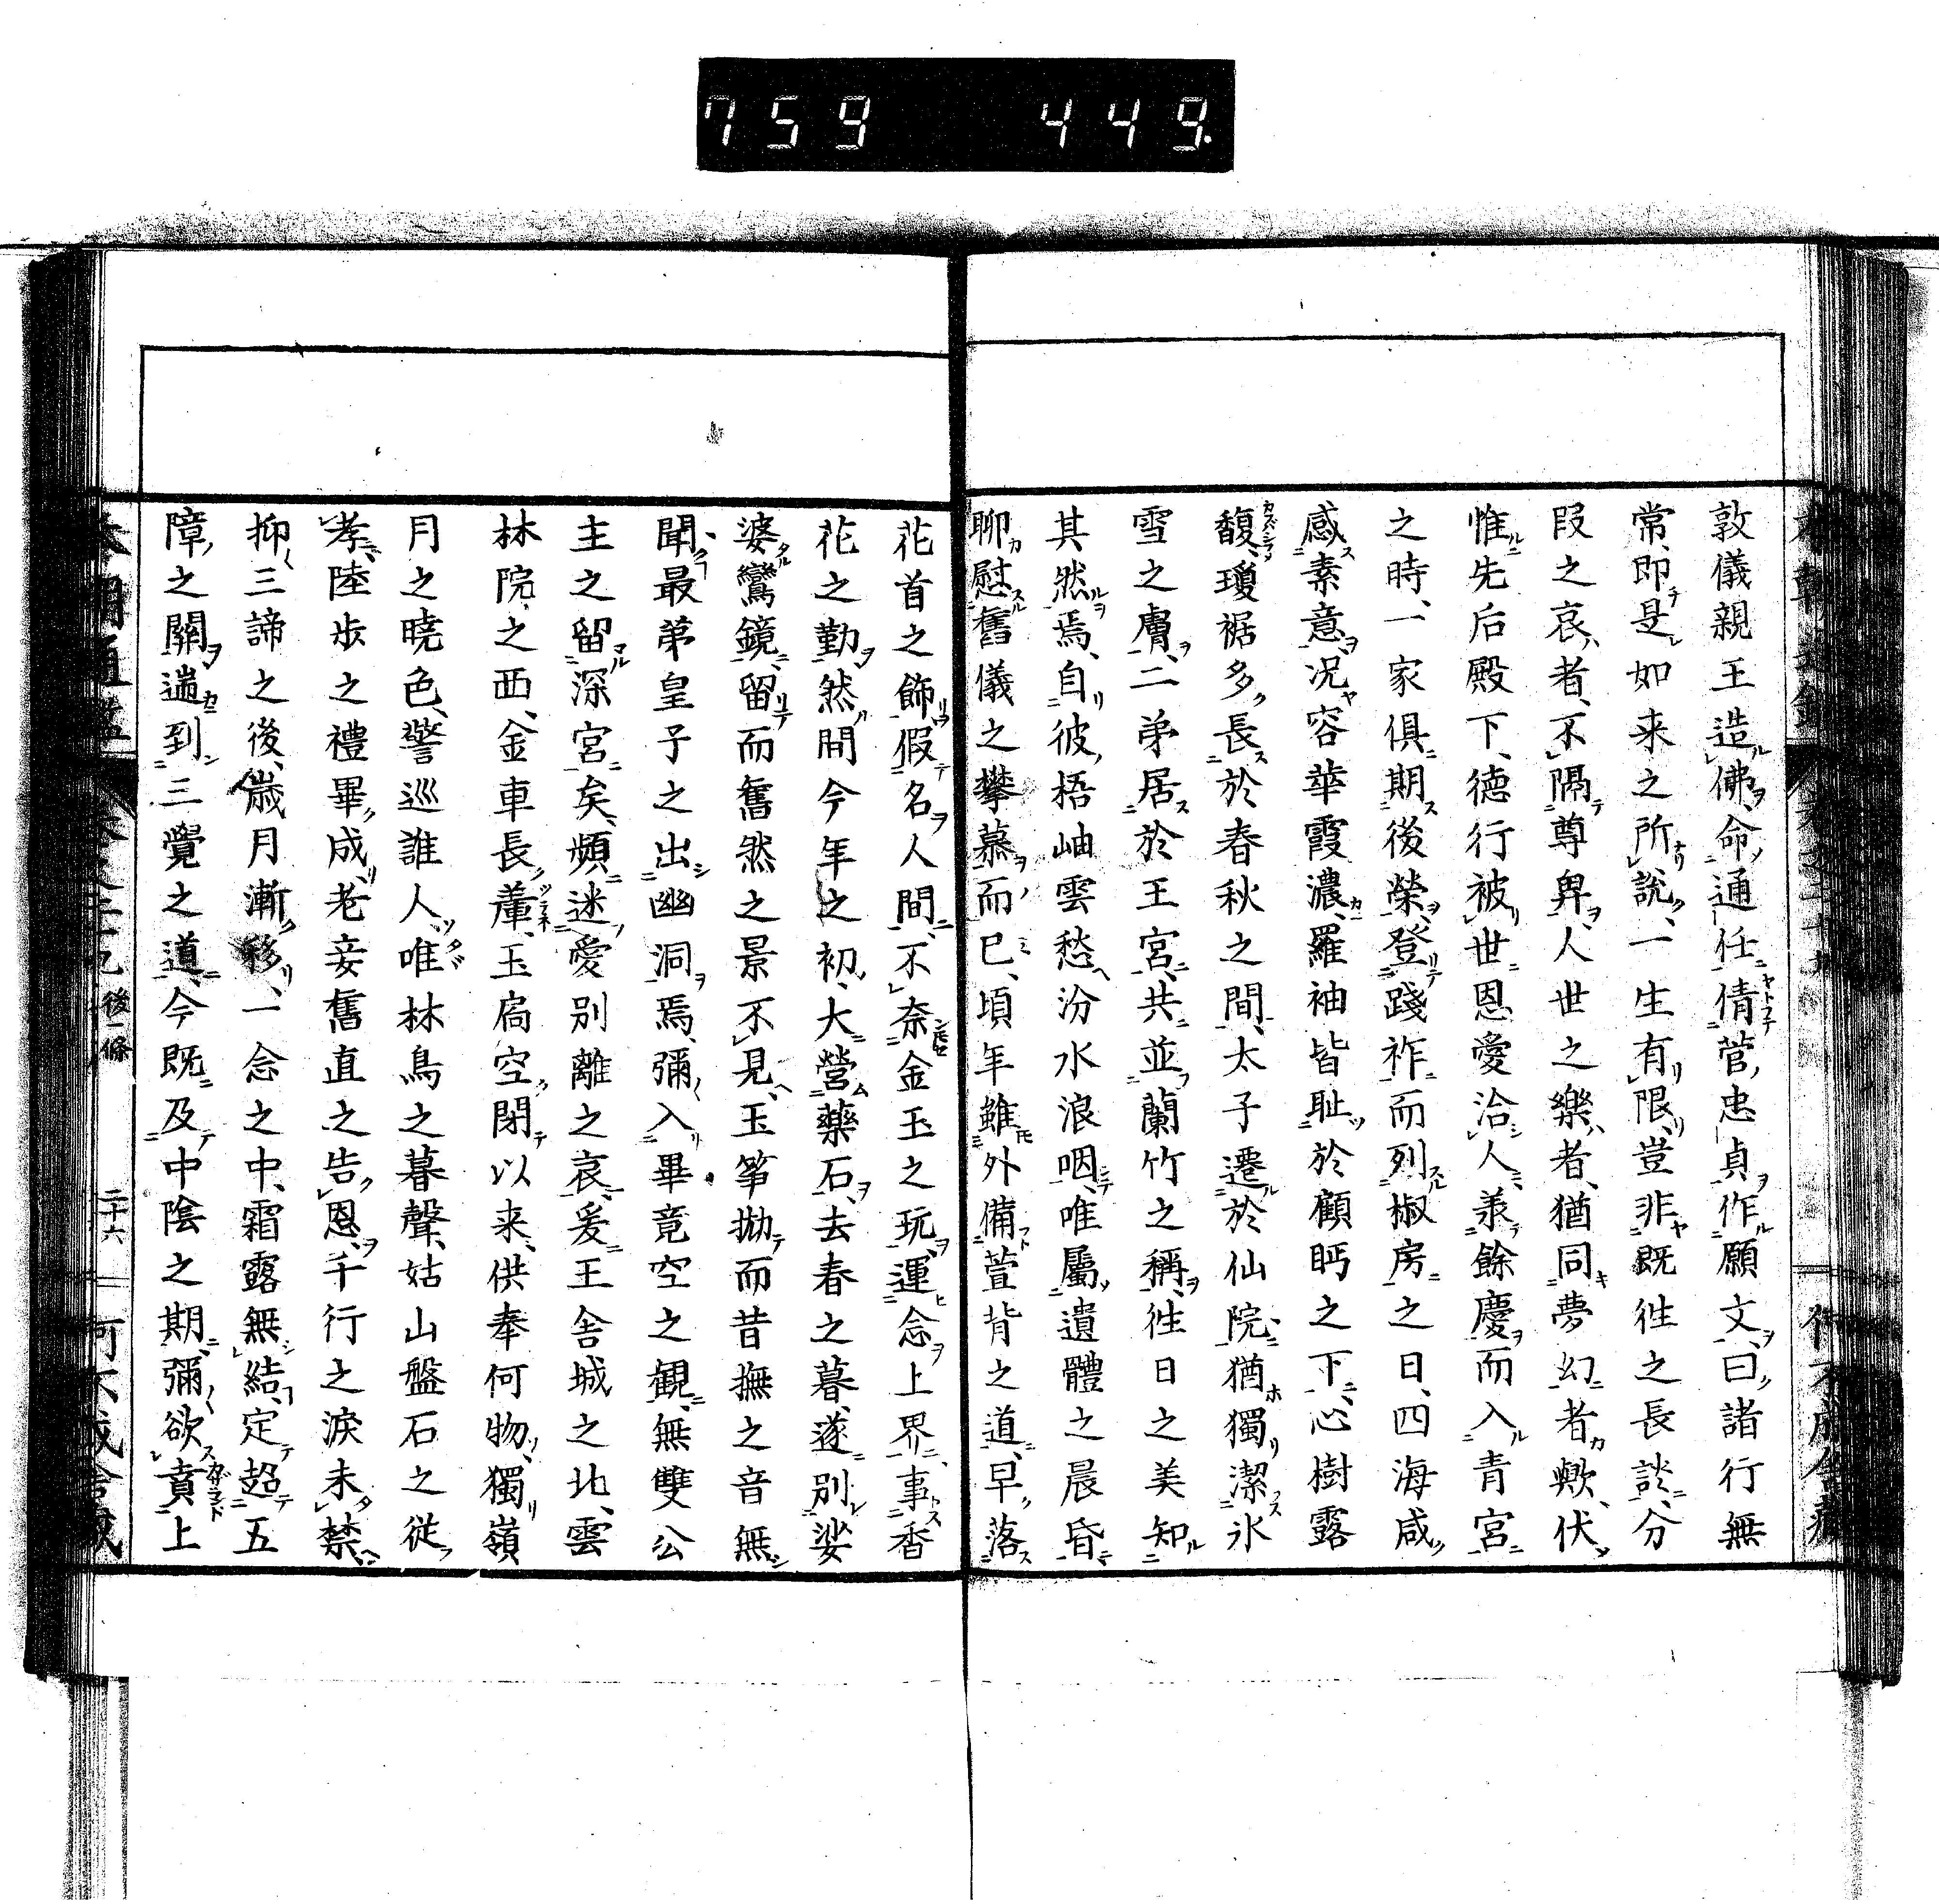 759 449.
敦儀親王造佛、命通任倩菅忠貞作願文、曰、諸行無
常、即是如来之所說、一生有限、豈非既徃之長談、分
段之哀者、不隔尊卑、人世之樂者、猶同夢幻者歟、伏
惟先后殿下、德行被世、恩愛洽人、羕餘慶而入青宮
之時、一家俱期後榮、登踐祚而列椒房之日、四海咸
感素意、况容華霞濃、羅袖皆耻於顧眄之下、心樹露
馥、瓊裾多長於春秋之間、太子遷於仙院、猶獨潔氷
雪之膚、二弟居於王宮、共並蘭竹之稱、徃日之美知
其然焉、自彼梧岫雲愁、汾水浪咽、唯屬遺體之晨昏、
聊慰舊儀之攀慕而已、頃年雖外備萱背之道、早落
花首之飾、假名人間、不奈金玉之玩、運念上界、事香
花之勤、然間今年之初、大營藥石、去春之暮、遂別娑
婆、鸞鏡留而舊然之景不見、玉筝拋而昔撫之音無
聞、最弟皇子之出幽洞焉、彌入畢竟空之観、無雙公
主之留深宮矣、頻迷愛別離之哀、爰王舎城之北、雲
林院之西、金車長輦、玉扃空閇以来、供奉何物、獨嶺
月之曉色、警巡誰人、唯林鳥之暮聲、姑山盤石之徒
孝、陸歩之禮畢成、老妾舊直之告恩、千行之淚未禁、
抑三諦之後、歳月漸移、一念之中、霜露無結、定超五
障之關、遄到三覺之道、今既及中陰之期、彌欲賁上
後一條
二十六